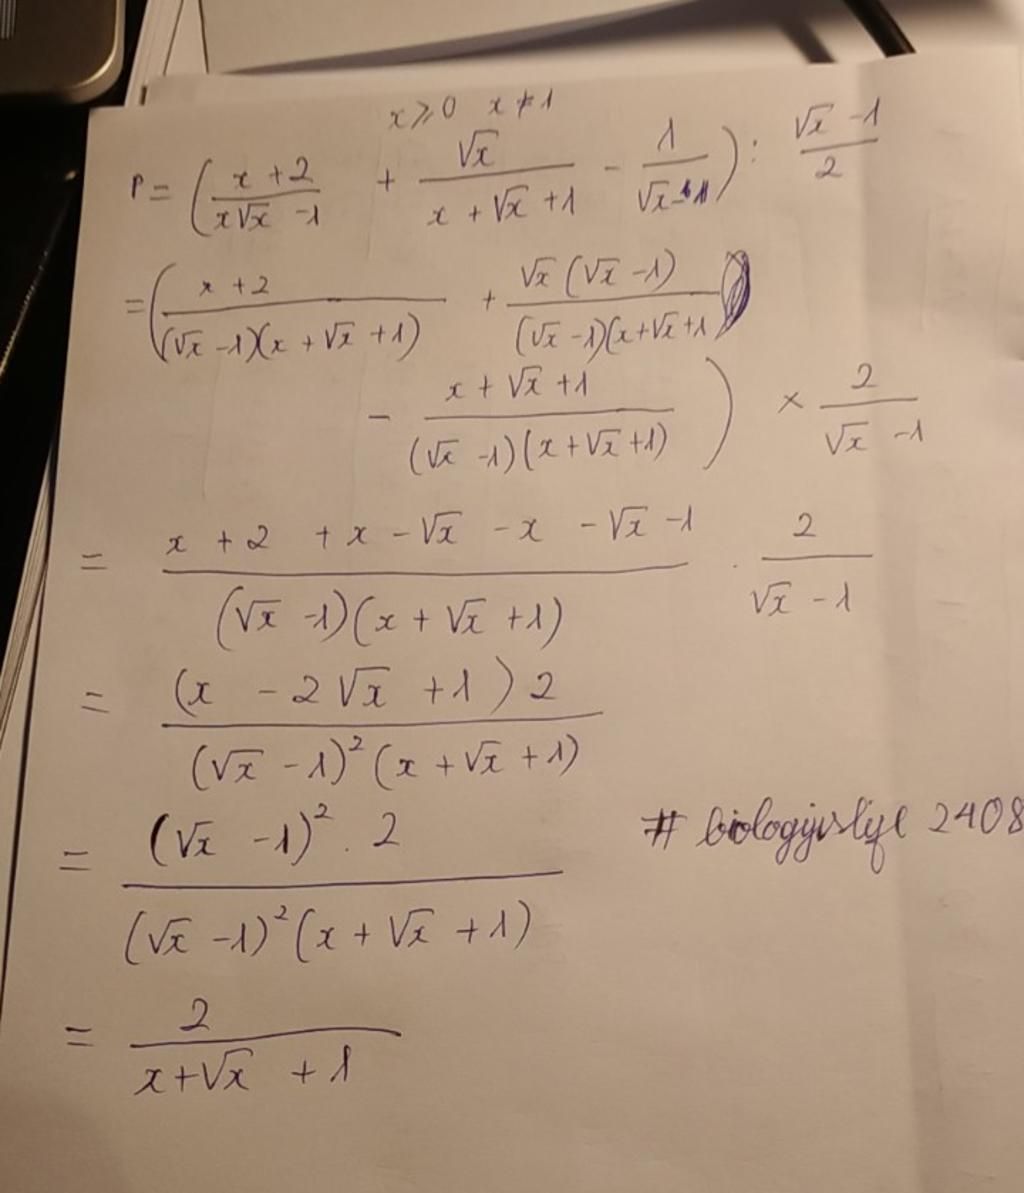 x ≥ 0 x ≠ 1
P = ( (x + 2)/(x√x - 1) + √x/(x + √x + 1) - 1/(√x - 1) ) : (√x - 1)/2
= ( (x + 2)/((√x - 1)(x + √x + 1)) + √x(√x - 1)/((√x - 1)(x + √x + 1)
- (x + √x + 1)/((√x - 1)(x + √x + 1)) ) × 2/(√x - 1)
= (x + 2 + x - √x - x - √x - 1)/((√x - 1)(x + √x + 1)) . 2/(√x - 1)
= (x - 2√x + 1)2/((√x - 1)²(x + √x + 1))
= (√x - 1)² . 2/((√x - 1)²(x + √x + 1))
# biologyislife 2408
= 2/(x + √x + 1)